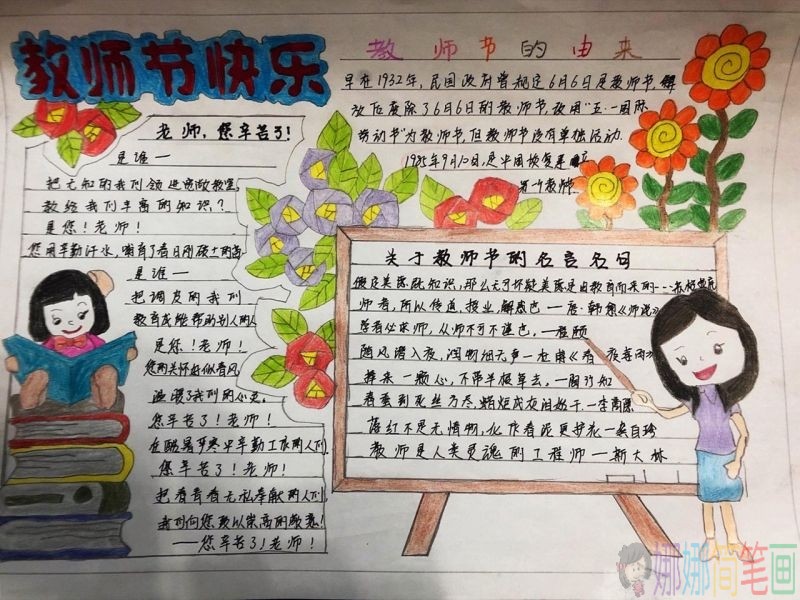 教师节快乐
教师节的由来
早在1932年，民国政府曾规定6月6日是教师节，解
放后废除了6月6日的教师节，改用"五·一国际
劳动节"为教师节，但教师节没有单独活动.
1985年9月10日，是中国恢复建立
第一个教师
老师，您辛苦了！
是谁一
把无知的我们领进宽敞教室，
教给我们丰富的知识？
是您！老师！
您用辛勤汗水，哺育了春日刚破土的
是谁一
把调皮的我们
教育成能帮助别人的人
是您！老师！
您的关怀好似春风
温暖了我们的心灵
您辛苦了！老师！
在酷暑严寒中辛勤工作的人们
您辛苦了！老师！
把青春无私奉献的人们
我们向您致以崇高的敬意！
——您辛苦了！老师！
关于教师节的名言名句
师者，所以传道，授业，解惑也一唐·韩愈《师说》
随风潜入夜，润物细无声一杜甫《春夜喜雨》
捧来一颗心，不带半根草去，一陶行知
春蚕到死丝方尽，蜡炬成灰泪始干.一李商隐
落红不是无情物，化作春泥更护花一龚自珍
教师是人类灵魂的工程师一斯大林
娜娜简笔画